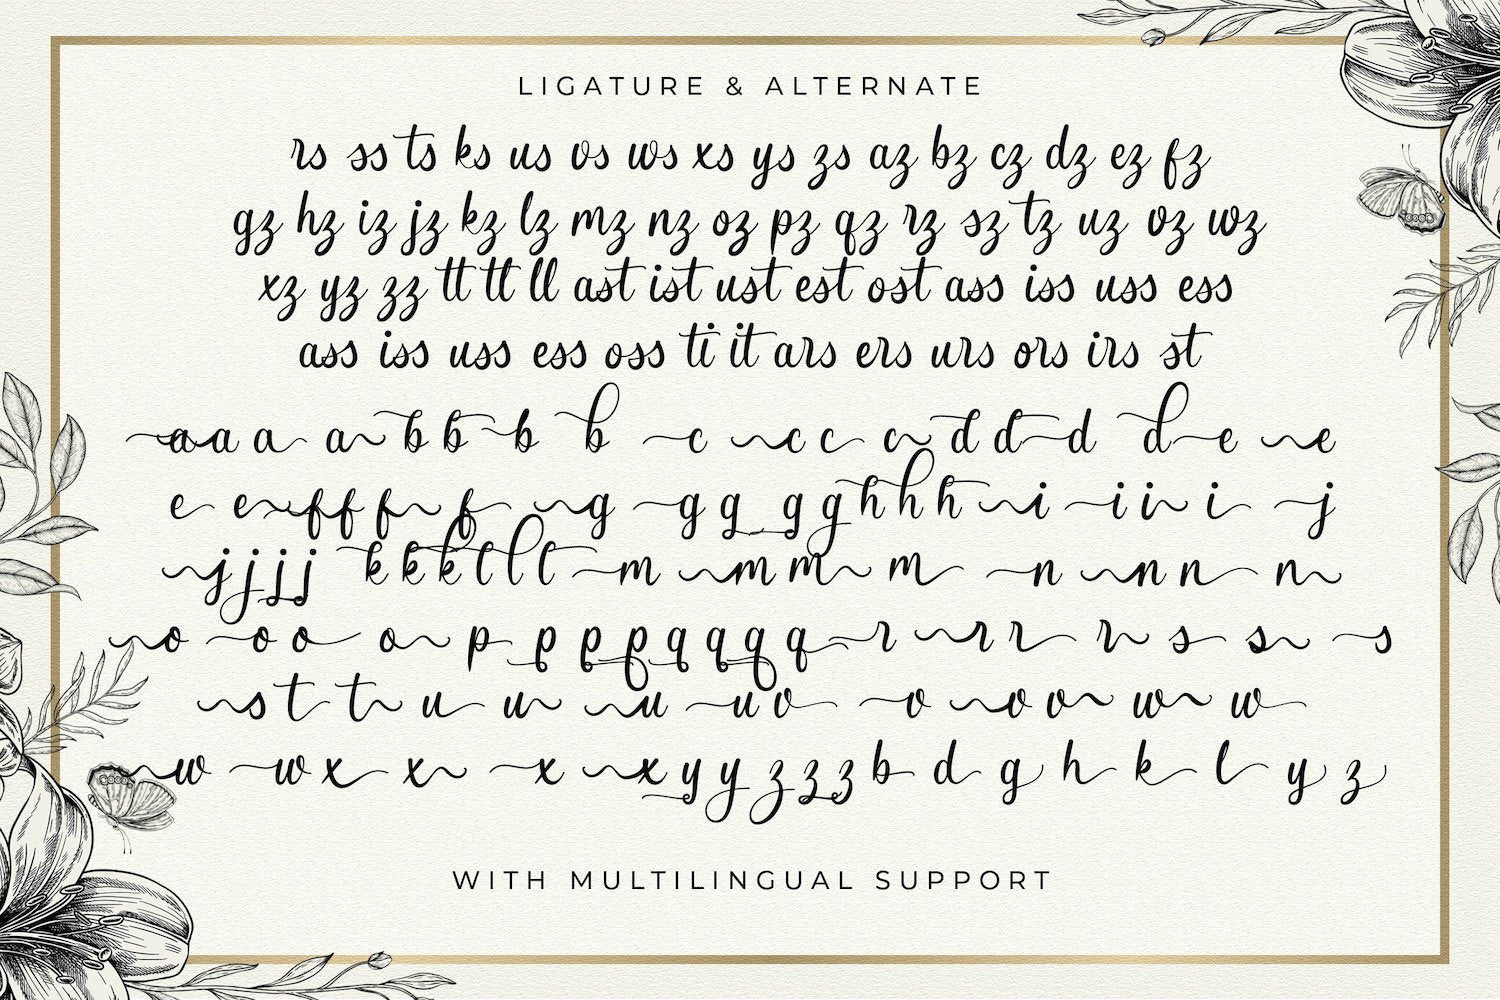 LIGATURE & ALTERNATE
rs ss ts ks us vs ws xs ys zs az bz cz dz ez fz
gz hz iz jz kz lz mz nz oz pz qz rz sz tz uz vz wz
xz yz zz tt tl ll ast ist ust est ost ass iss uss ess
ass iss uss ess oss ti it ars ers urs ors irs st
a a a a b b b b c c c c d d d d e e
e e f f f f g g g g g h h h i i i i j
j j j j k k k l l l m m m m n n n n
o o o o p p p p q q q q r r r r s s s
s t t u u u u v v v v w w
w w x x x x y y z z z b d g h k l y z
WITH MULTILINGUAL SUPPORT